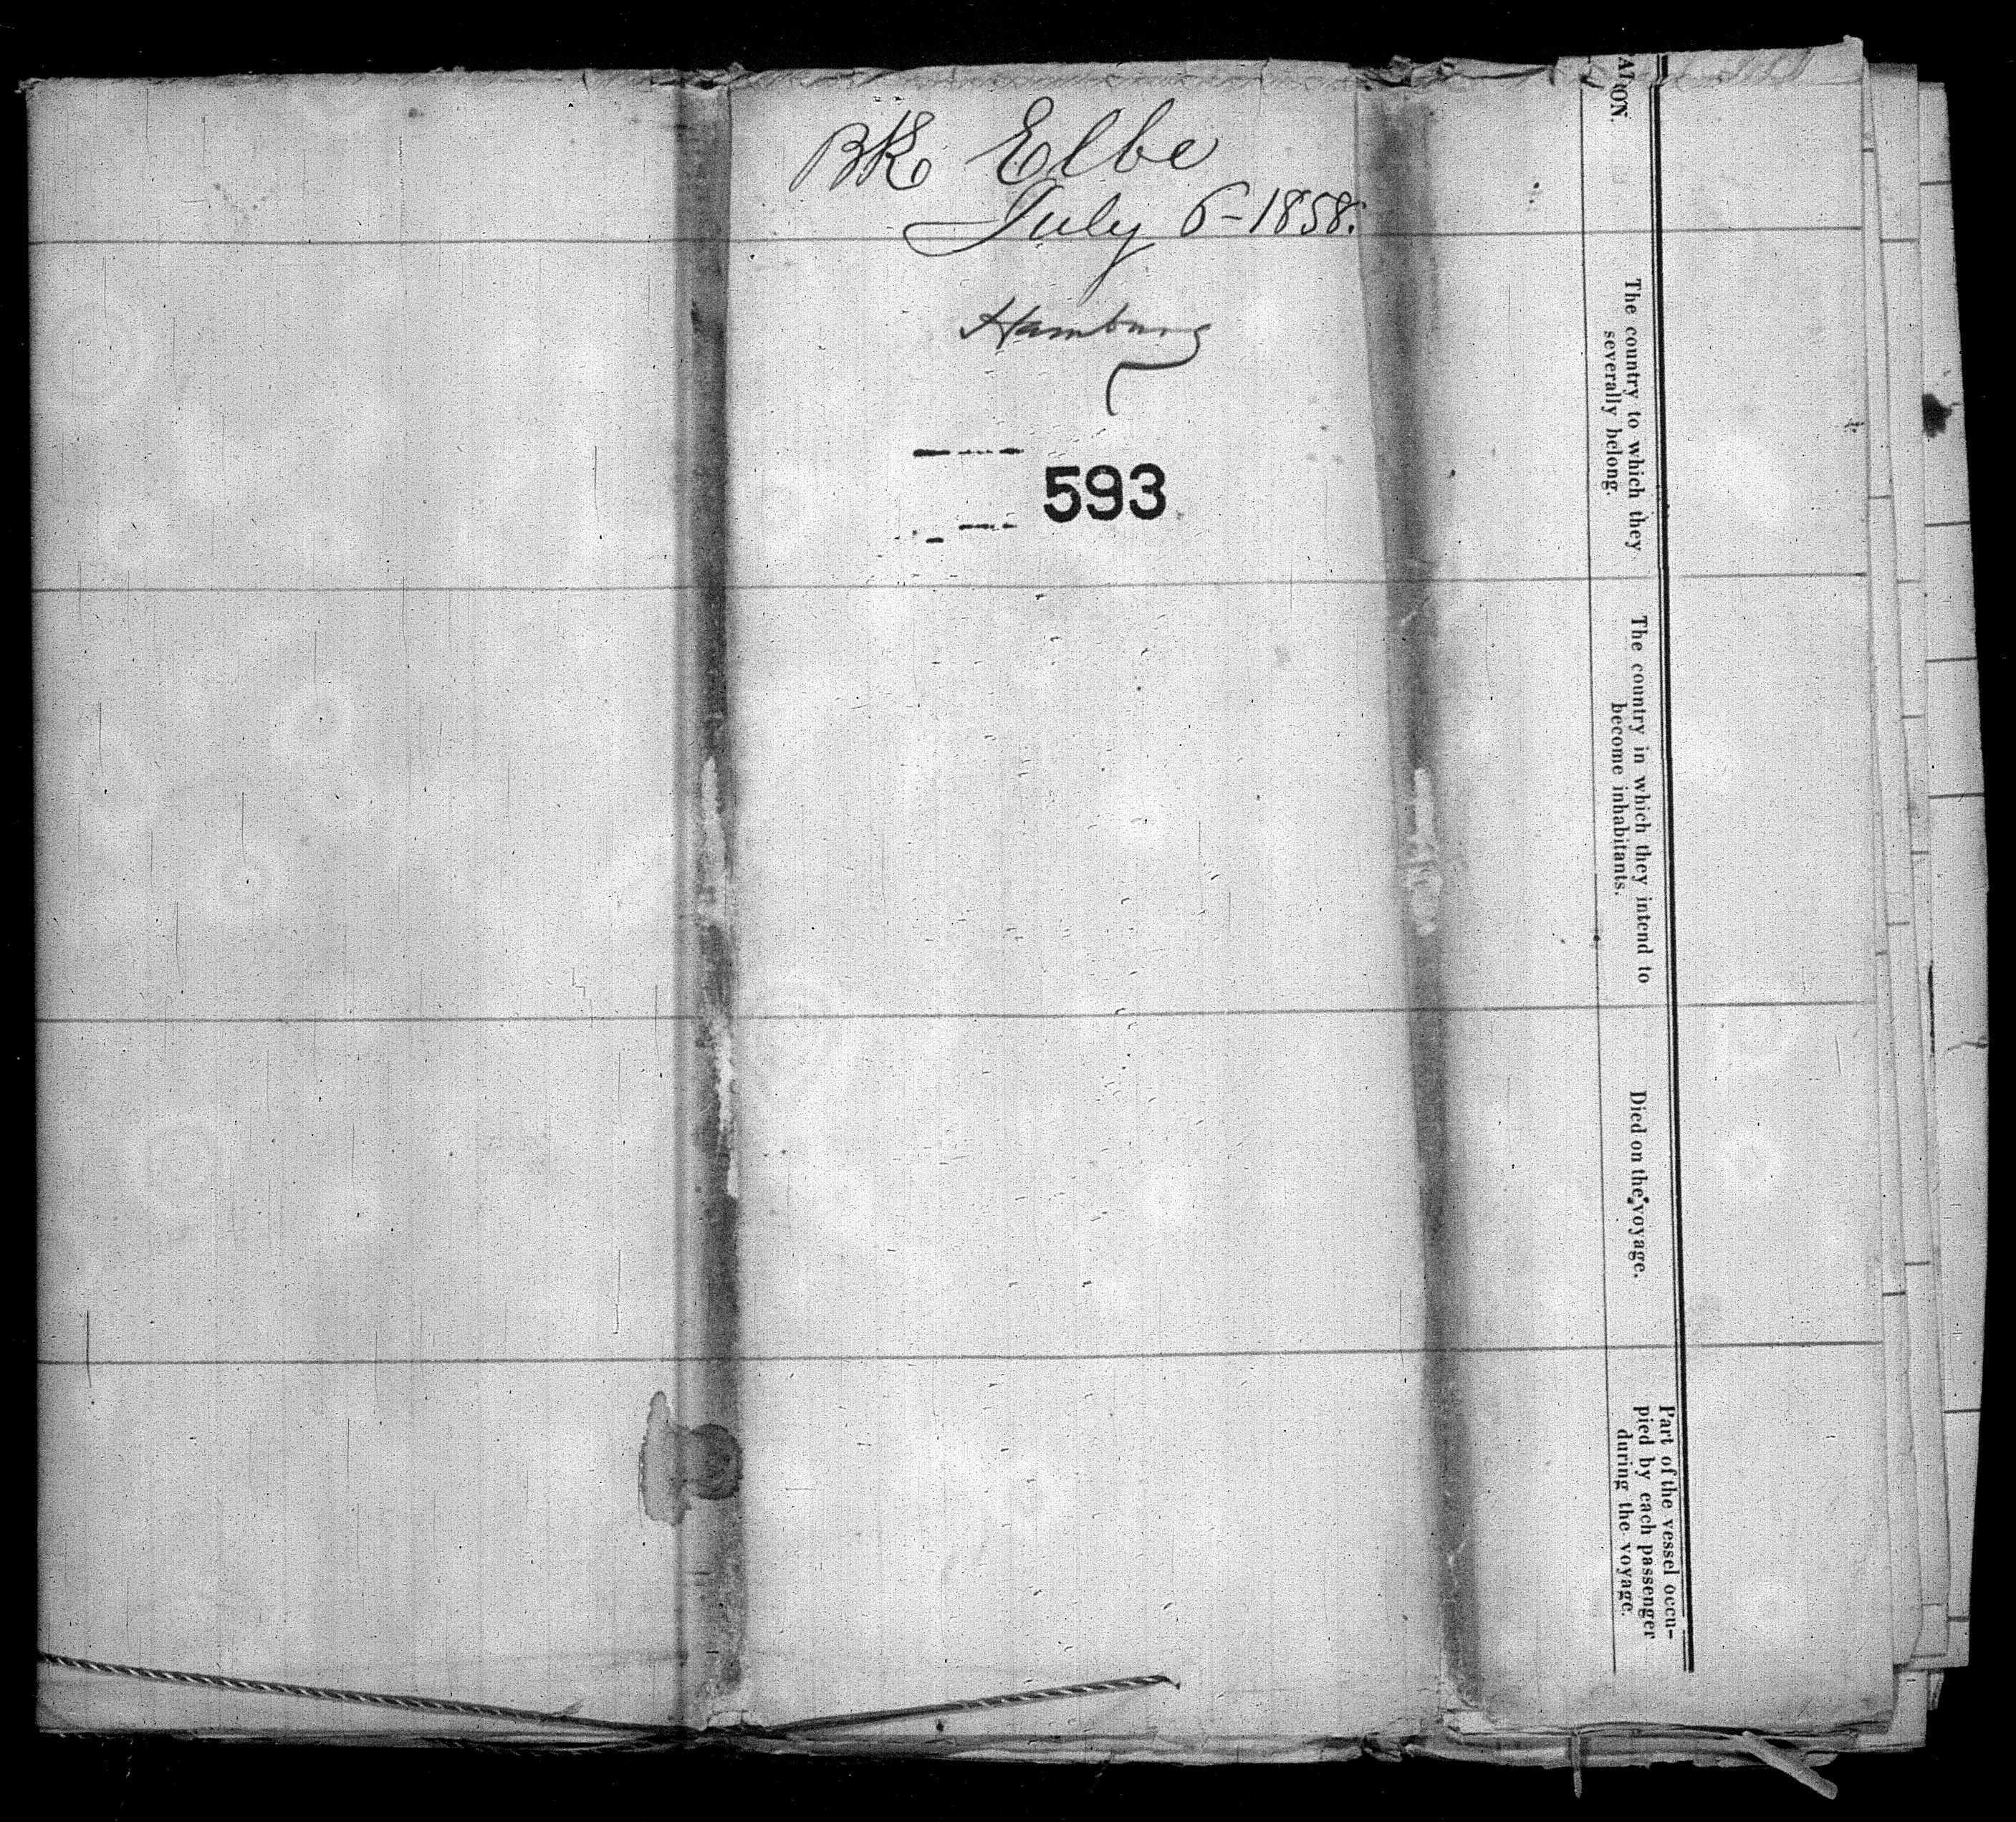 BK Elbe
July 6-1858.
Hamburg
593
The country to which they
severally belong.
The country in which they intend to
become inhabitants.
Died on the voyage.
Part of the vessel occu-
pied by each passenger
during the voyage.